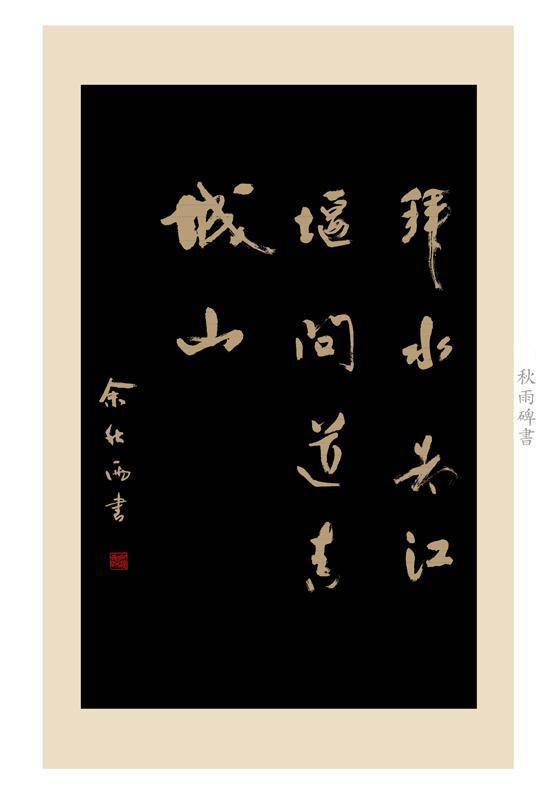 拜水都江
堰問道青
城山
余秋雨書
秋雨碑書